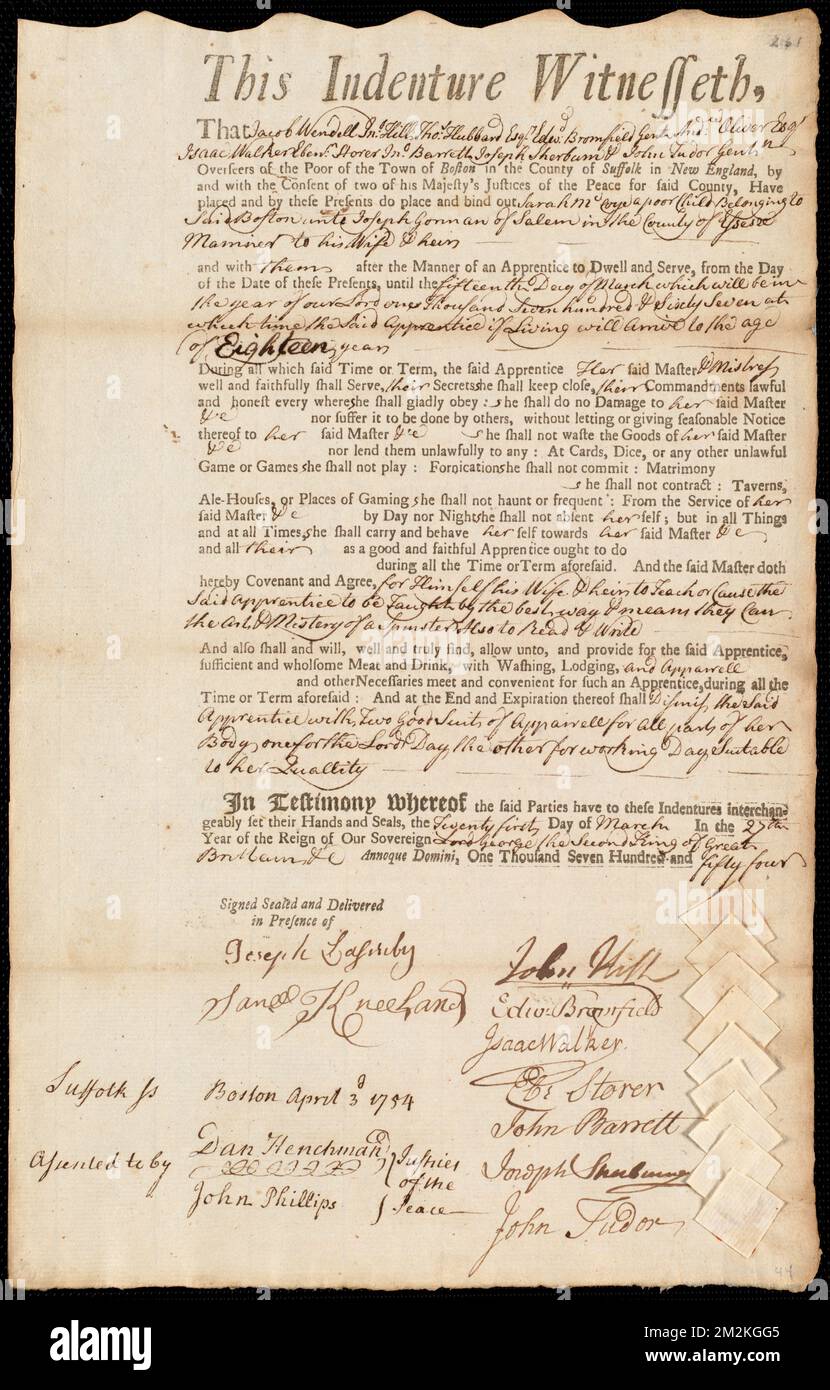 261
This Indenture Witnesseth,
That Jacob Wendell Jnº Hill, Thoˢ Hubbard Esqʳˢ Edwᵈ Bromfield Gent Andʷ Oliver Esqʳ
Isaac Walker Ebenʳ Storer Jnº Barrett, Joseph Sherburn & John Tudor Gentⁿ
Overseers of the Poor of the Town of Boston in the County of Suffolk in New England, by
and with the Consent of two of his Majesty's Justices of the Peace for said County, Have
placed and by these Presents do place and bind out Sarah a poor Child Belonging to
Said Boston unto Joseph Gorman of Salem in the County of Essex
Mariner to his Wife & heirs
and with them after the Manner of an Apprentice to Dwell and Serve, from the Day
of the Date of these Presents, until the fifteenth Day of March which will be in
the year of our Lord one Thousand Seven hundred & Sixty Seven at
which time the Said Apprentice if Living will Arrive to the age
of Eighteen years
During all which said Time or Term, the said Apprentice Her said Master & Mistress
well and faithfully shall Serve, their Secrets she shall keep close, their Commandments lawful
and honest every where she shall gladly obey : she shall do no Damage to her said Master
&c nor suffer it to be done by others, without letting or giving seasonable Notice
thereof to her said Master &c she shall not waste the Goods of her said Master
&c nor lend them unlawfully to any : At Cards, Dice, or any other unlawful
Game or Games she shall not play : Fornication she shall not commit : Matrimony
she shall not contract : Taverns,
Ale-Houses, or Places of Gaming she shall not haunt or frequent : From the Service of her
said Master &c by Day nor Night she shall not absent her self ; but in all Things
and at all Times, she shall carry and behave her self towards her said Master &c
and all their as a good and faithful Apprentice ought to do
during all the Time or Term aforesaid. And the said Master doth
hereby Covenant and Agree, for Himself his Wife & heirs to Teach or Cause the
Said Apprentice to be Taught by the best way & means they Can
the Art & Mistery of a Spinster Also to Read & Write
And also shall and will, well and truly find, allow unto, and provide for the said Apprentice,
sufficient and wholsome Meat and Drink, with Washing, Lodging, and Apparrell
and other Necessaries meet and convenient for such an Apprentice, during all the
Time or Term aforesaid : And at the End and Expiration thereof shall Dismiss the Said
Apprentice with Two Good Suits of Apparrell for all parts of her
Body, one for the Lords Day, the other for working Days Suitable
to her Quallity
In Testimony whereof the said Parties have to these Indentures interchan-
geably set their Hands and Seals, the Twenty first Day of March In the 27th
Year of the Reign of Our Sovereign Lord George the Second King of Great
Brittain &c Annoque Domini, One Thousand Seven Hundred and fifty four
Signed Sealed and Delivered
in Presence of
Joseph Lasinby
Samˡˡ Kneeland
John Hill
Edwᵈ Bromfield
Isaac Walker.
Ebʳ Storer
John Barrett
Joseph Sherburne
John Tudor
Suffolk ss Boston April 3ᵈ 1754
Assented to by Dan Henchman
John Phillips
Justices
of the
Peace
44
alamy
Image ID: 2M2KGG5
www.alamy.com